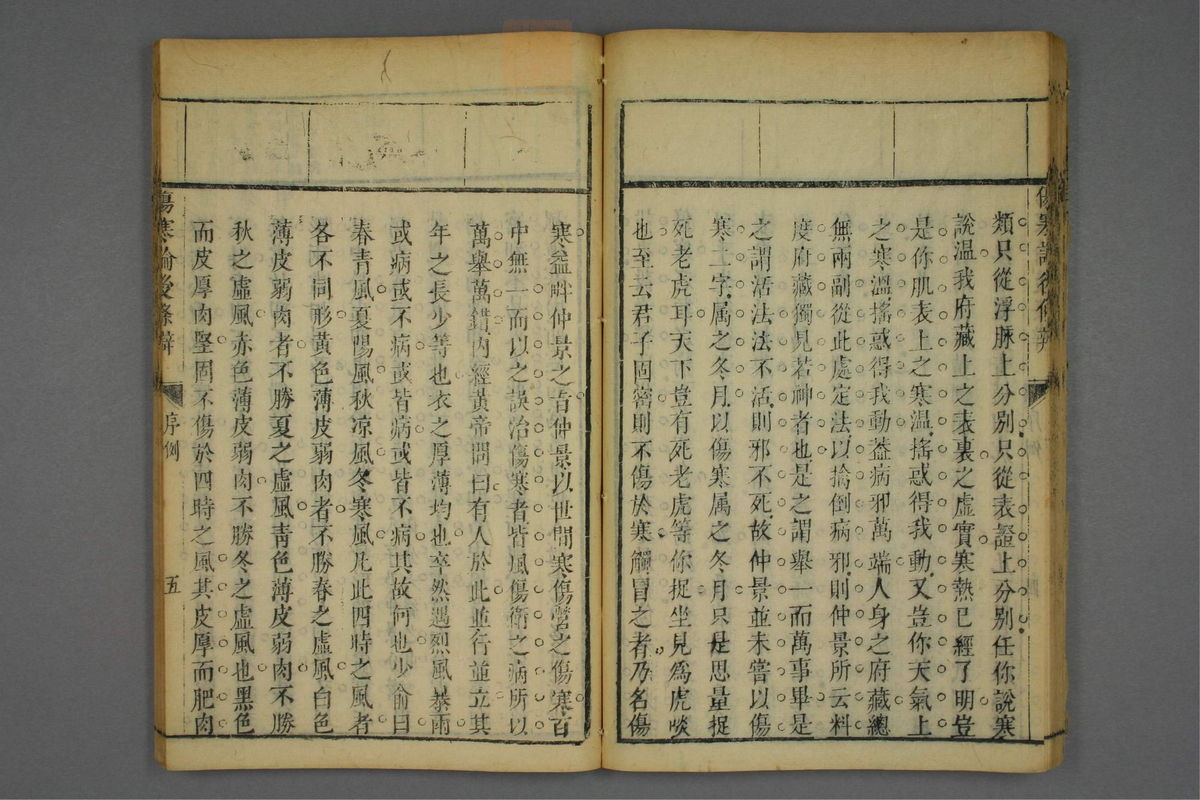 類只從浮脉上分別只從表證上分別任你說寒
說温我府藏上之表裏之虛實寒熱已經了明豈
是你肌表上之寒温搖惑得我動又豈你天氣上
之寒溫搖惑得我動葢病邪萬端人身之府藏總
無兩副從此處定法以擒倒病邪則仲景所云料
度府藏獨見若神者也是之謂舉一而萬事畢是
之謂活法法不活則邪不死故仲景並未嘗以傷
寒二字属之冬月以傷寒属之冬月只是思量捉
死老虎耳天下豈有死老虎等你捉坐見爲虎啖
也至云君子固密則不傷於寒觸冒之者乃名傷
寒益畔仲景之旨仲景以世間寒傷營之傷寒百
中無一而以之誤治傷寒者皆風傷衛之病所以
萬舉萬錯内經黃帝問曰有人於此並行並立其
年之長少等也衣之厚薄均也卒然遇烈風暴雨
或病或不病或皆病或皆不病其故何也少俞曰
春青風夏陽風秋凉風冬寒風凡此四時之風者
各不同形黃色薄皮弱肉者不勝春之虛風白色
薄皮弱肉者不勝夏之虛風青色薄皮弱肉不勝
秋之虛風赤色薄皮弱肉不勝冬之虛風也黑色
而皮厚肉堅固不傷於四時之風其皮厚而肥肉
傷寒論後條辯
序例
五